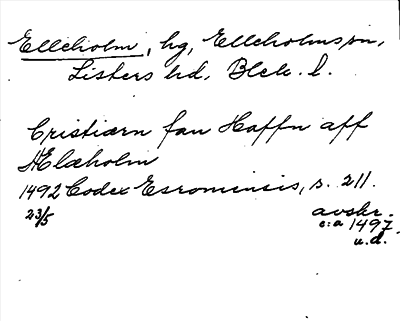 Elleholm, hg, Elleholms sn,
Listers hd, Blek. l.
Cristiærn fan Haffn aff
Ælæholm
1492 Codex Esromensis, s. 211.
23/5 avskr.
c:a 1497.
u.d.